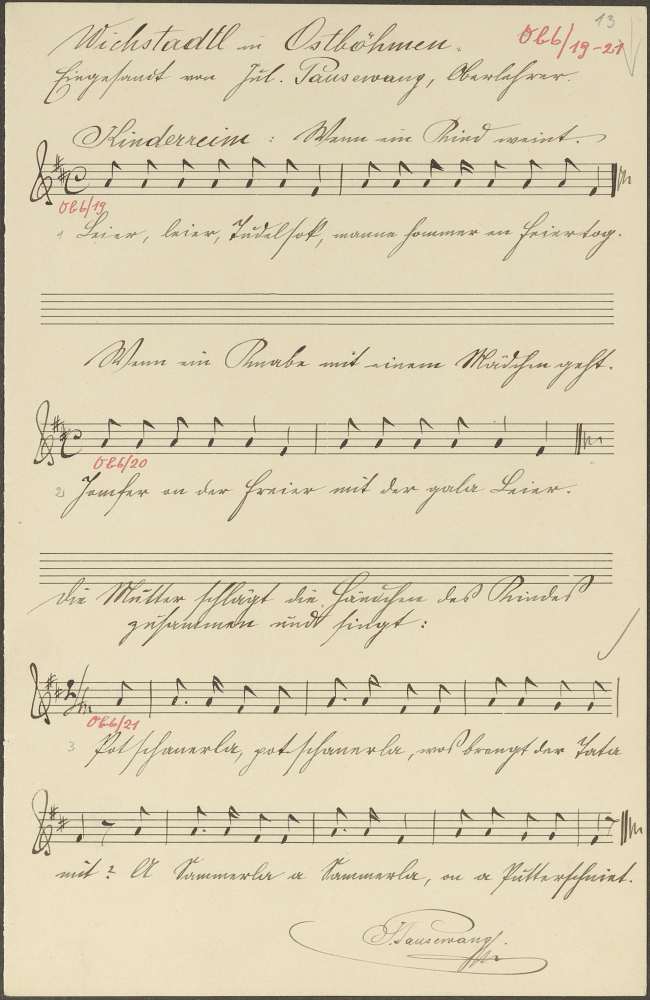 13
Wichstadtl in Ostböhmen.
Obb/19-21
Eingesandt von Jul. Pausewang, Oberlehrer.
Kinderreim: Wenn ein Kind weint.
Obb/19
1 Leier, leier, Tudelsok, manne hommer en Feiertog.
Wenn ein Knabe mit einem Mädchen geht.
Obb/20
2) Jomfer on der Freier mit der gala Leier.
Die Mutter schlägt die Händchen des Kindes
zusammen und singt:
Obb/21
3 Potschanerla, potschanerla, wos brengt der Tata
mit? A Sammerla a Sammerla, on a Putterschniet.
J. Pausewang